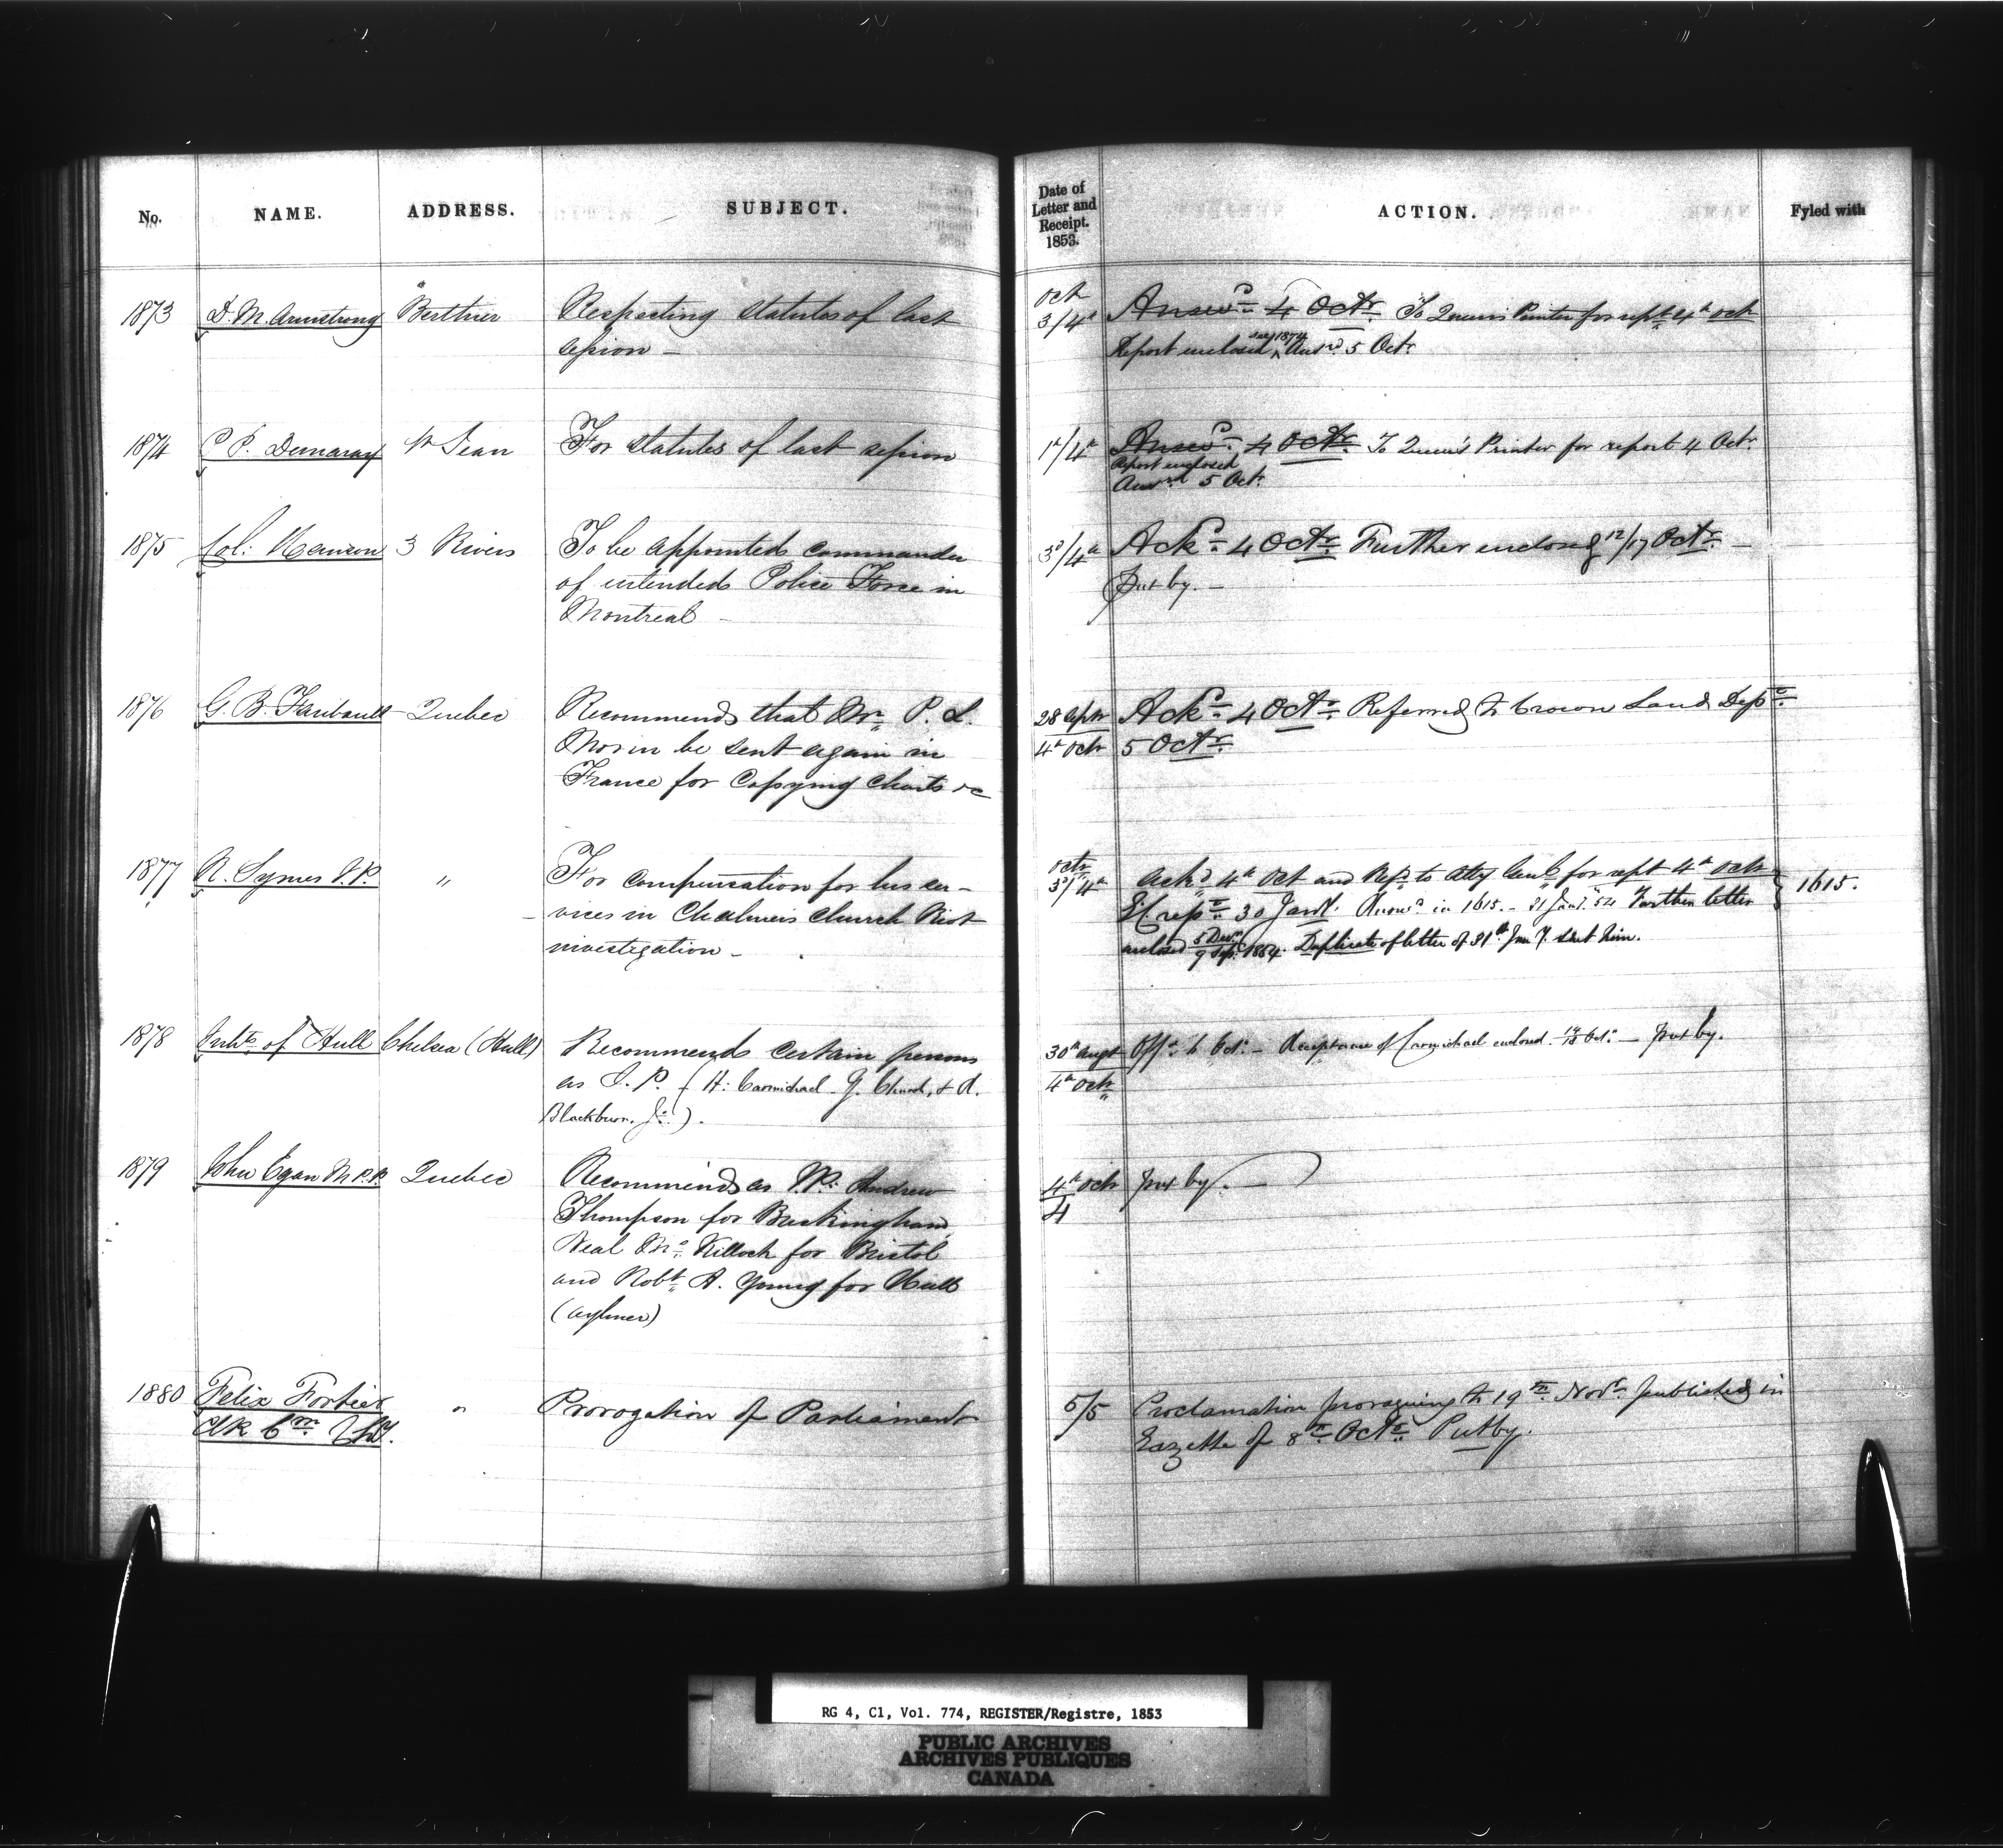 No.
NAME.
ADDRESS.
SUBJECT.
Date of
Letter and
Receipt.
1853.
ACTION.
Fyled with
1873 D. M. Armstrong Berthier Respecting Statutes of last
session –
Octr
3/4th Answd. 4 Octr. To Queen's Printer for rept. 4th Octr
Report enclosed see 1874 Answd. 5 Octr.
1874 P. P. Demaray St Jean For Statutes of last session
1st/4th Answd. 4 Octr. To Queen's Printer for report 4 Octr.
Report enclosed
Answrd. 5 Octr.
1875 Col: Hanson 3 Rivers To be appointed commander
of intended Police Force in
Montreal –
3d/4th Ackd. 4 Octr. Further enclosed 12/17 Octr. –
Put by. –
1876 G. B. Faribault Quebec Recommends that Mr. P. L.
Morin be sent again in
France for Copying Charts &c
28 Septr Ackd. 4 Octr. Referred to Crown Land Dept.
4th Octr 5 Octr.
1877 R. Symes J.P. " For compensation for his ser–
vices in Chalmers Church Riot
investigation –
Octr
3d/4th Ackd. 4th Oct and Refd. to Atty Genl. for rept 4th Octr
30 Jany. Answd. in 1615. – 31 Jany. 54 Further letter
enclosed 1854. Duplicate of letter of 31st Jany. sent him.
1615.
1878 Inhts. of Hull Chelsea (Hull) Recommends certain persons
as J. P. (H: Carmichael G. Church, & A.
Blackburn, Jr.).
30th Augt Offd. 6 Octr. – Acceptance of Carmichael enclosed. 14/18 Octr. – Put by.
4th Octr
1879 John Egan M.P.P. Quebec Recommends as J.P.: Andrew
Thompson for Buckingham,
Neal Mc. Killock for Bristol
and Robt. A. Young for Hull
(Aylmer)
4th Octr Put by. –
4
1880 Felix Fortier " Prorogation of Parliament
Clk Cr. Chy.
5/5 Proclamation proroguing to 19th. Novr. published in
Gazette of 8th. Octr. Put by.
RG 4, C1, Vol. 774, REGISTER/Registre, 1853
PUBLIC ARCHIVES
ARCHIVES PUBLIQUES
CANADA